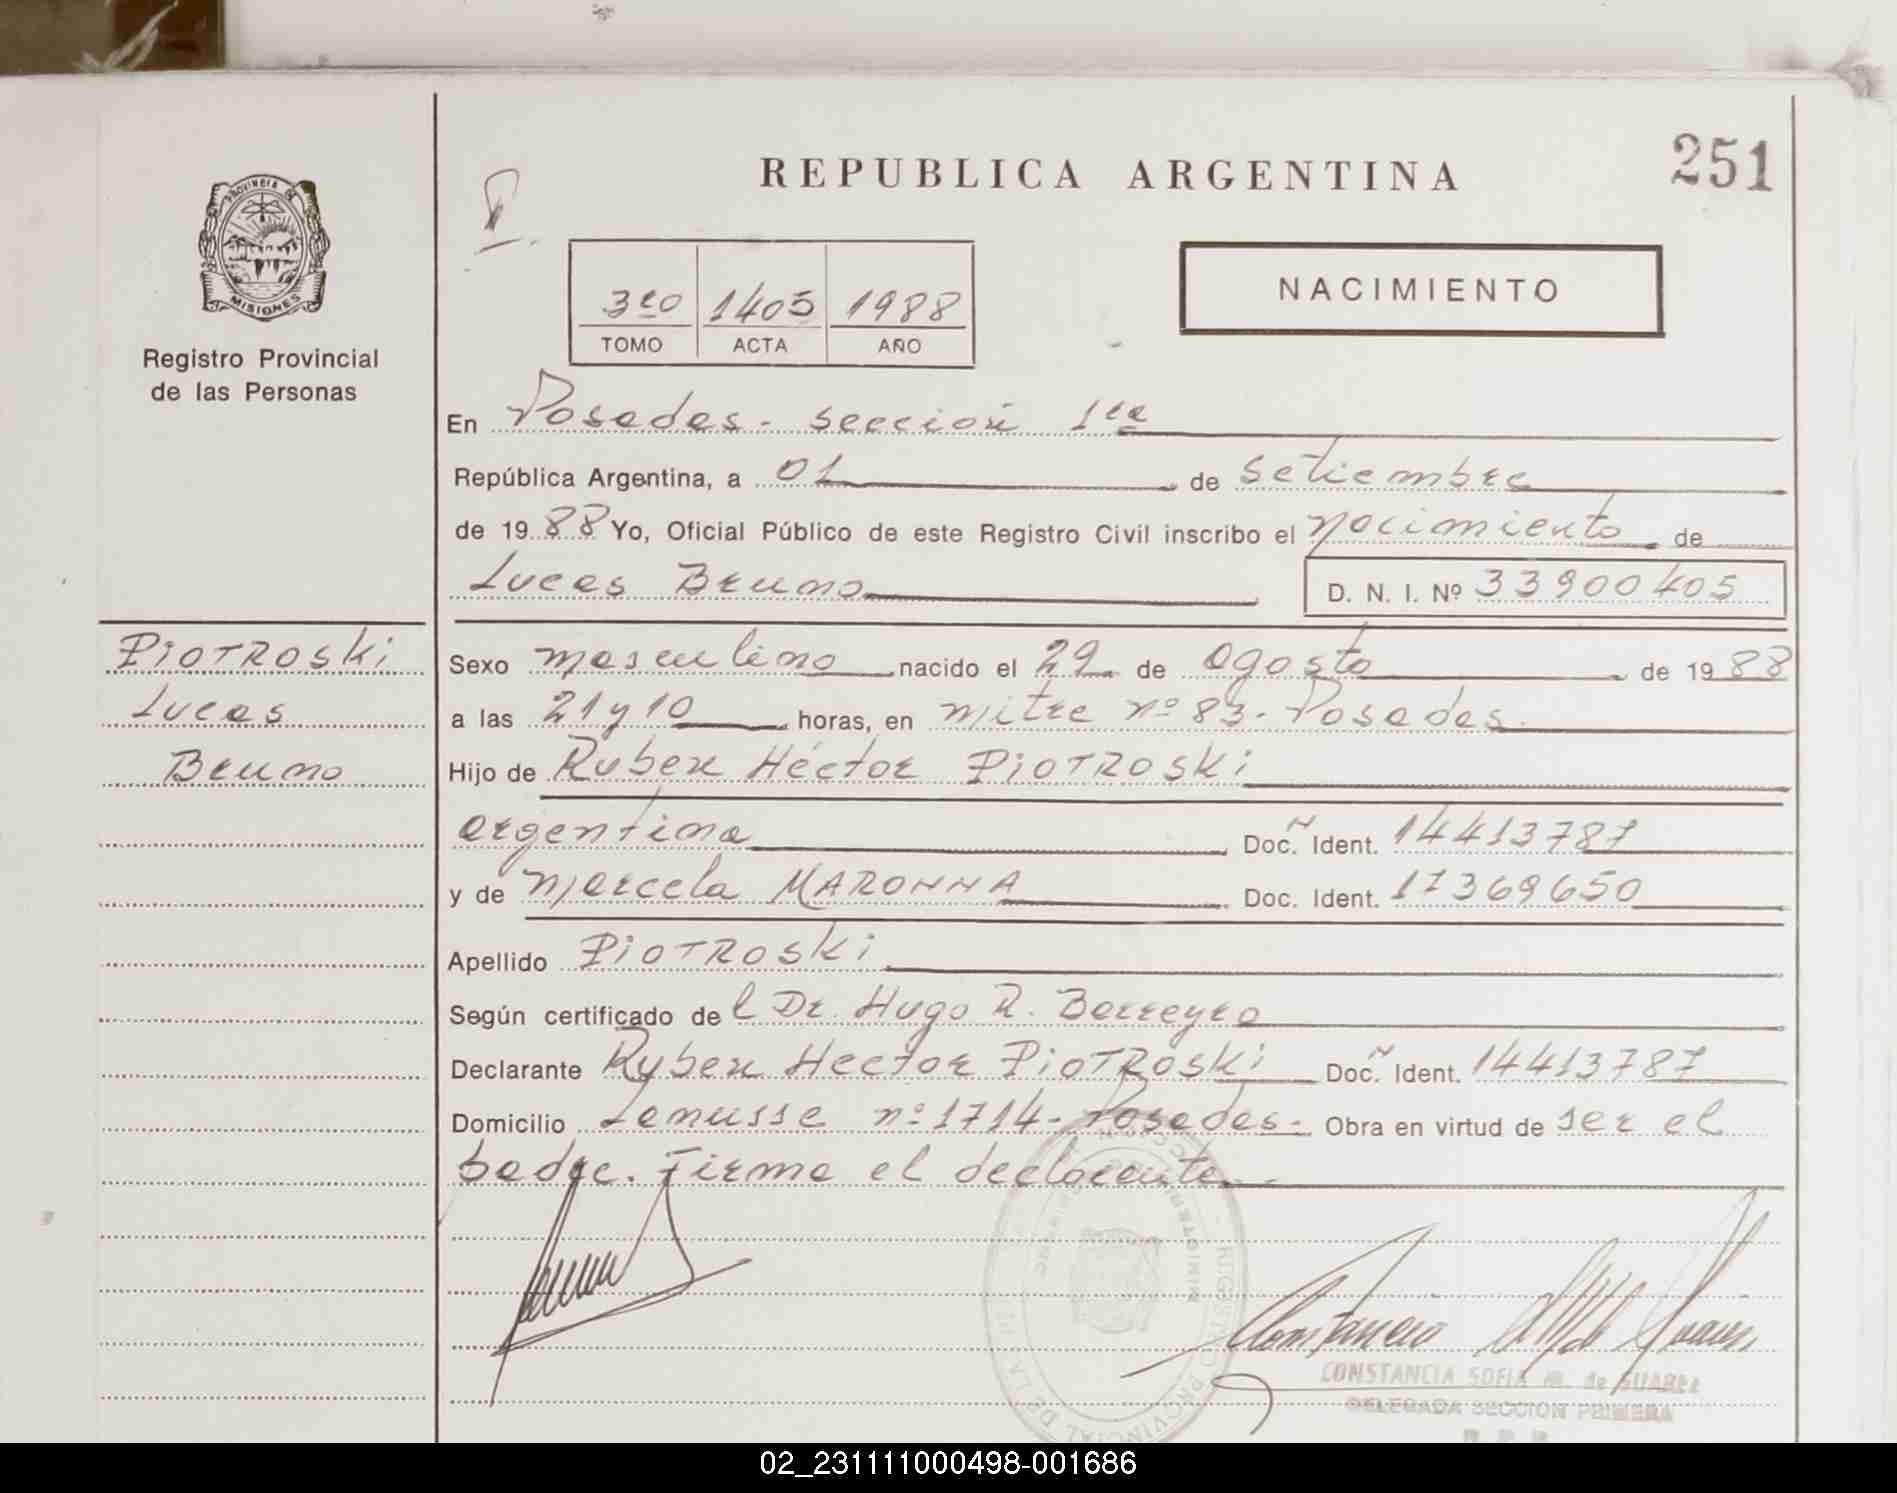 REPUBLICA ARGENTINA
251
PROVINCIA DE
MISIONES
Registro Provincial
de las Personas
3ro 1405 1988
TOMO ACTA AÑO
NACIMIENTO
En Posadas - sección 1ra
República Argentina, a 01 de setiembre
de 1988 Yo, Oficial Público de este Registro Civil inscribo el nacimiento de
Lucas Bruno
D. N. I. Nº 33900405
PIOTROSKi
Lucas
Bruno
Sexo masculino nacido el 29 de agosto de 1988
a las 21 y 10 horas, en mitre nº 83 - Posadas.
Hijo de Ruben Héctor PIOTROSKi
argentino Doc. Ident. 14413787
y de Marcela MARONNA Doc. Ident. 17369650
Apellido PIOTROSKi
Según certificado del Dr. Hugo R. Barreyro
Declarante Ruben Hector PIOTROSKi Doc. Ident. 14413787
Domicilio Lanusse nº 1714 - Posadas - Obra en virtud de ser el
padre. Firma el declarante
CONSTANCIA SOFIA M. de SUAREZ
DELEGADA SECCION PRIMERA
02_231111000498-001686